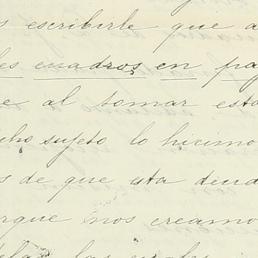 s escribirle que a
les cuadros en pa
e al tomar esta
cho sujeto lo hicimo
s de que esta deud
orque nos creamo